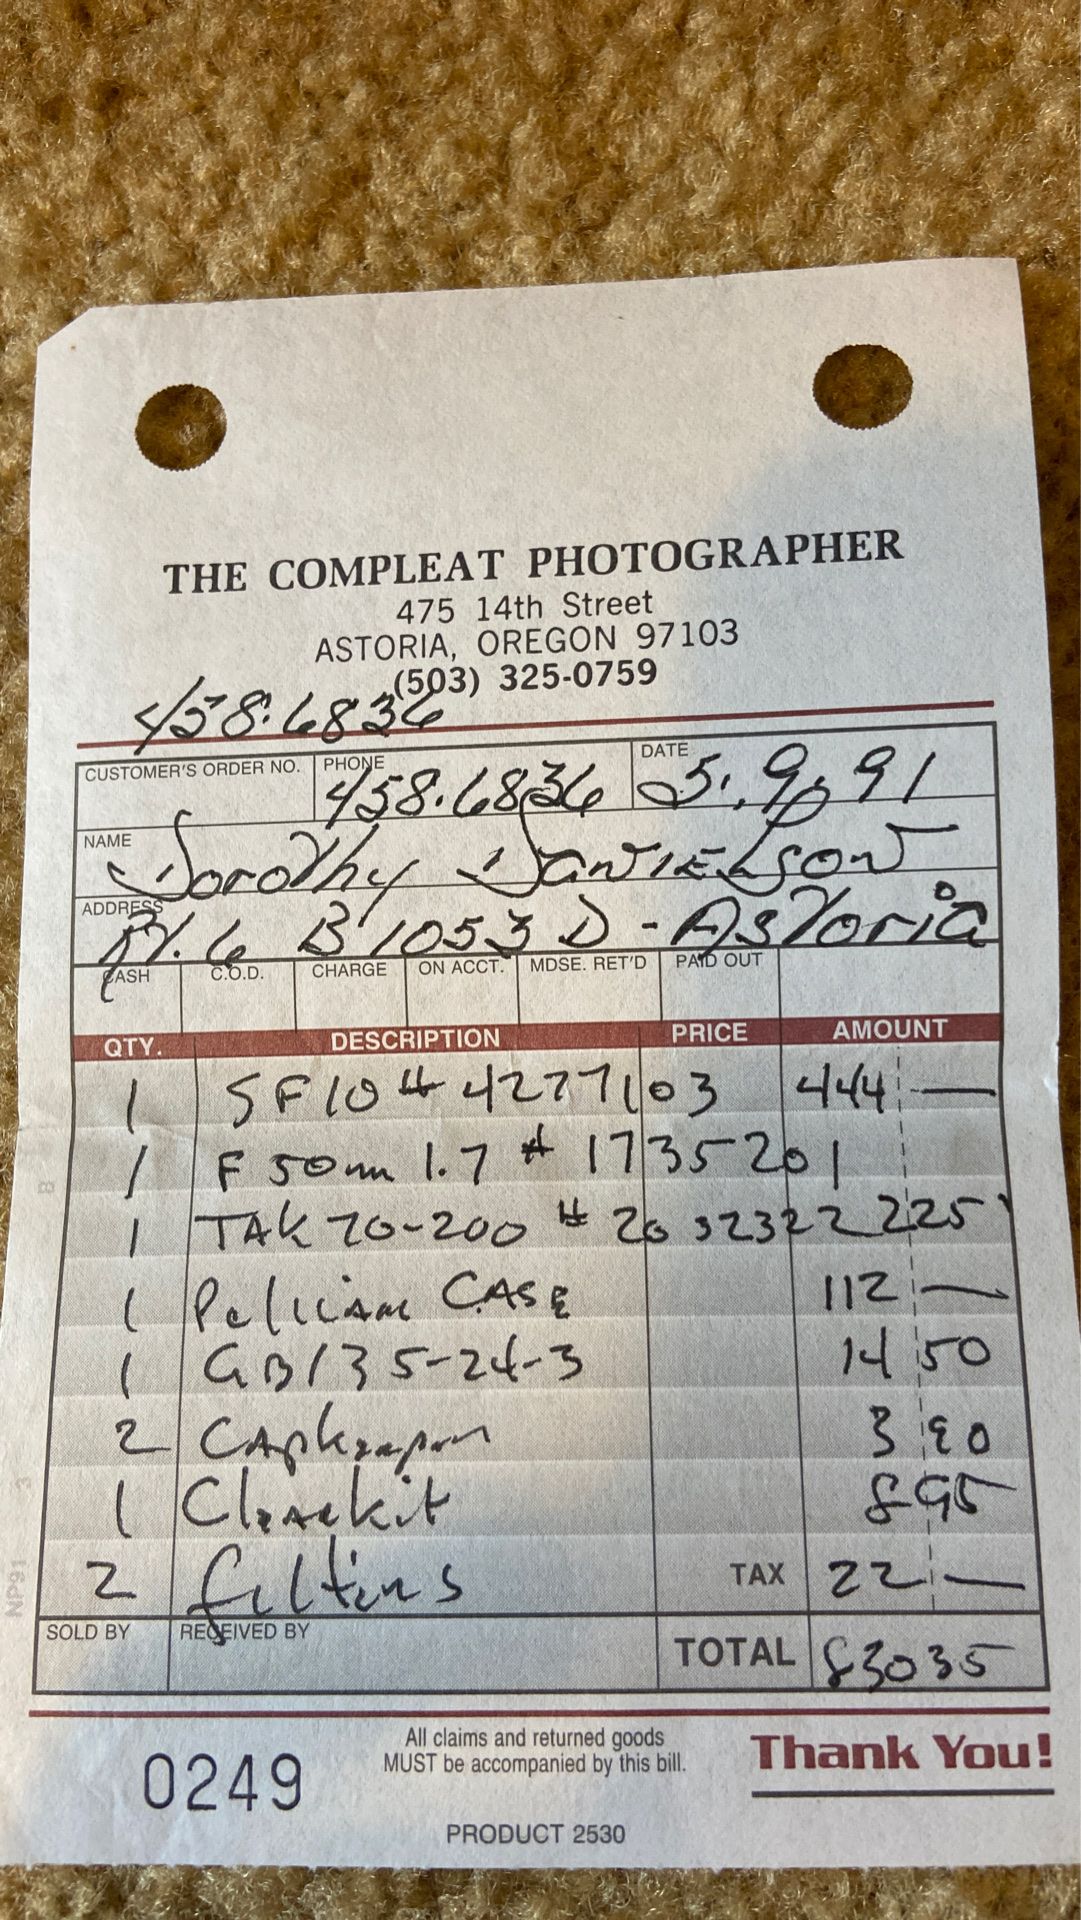 THE COMPLEAT PHOTOGRAPHER
475 14th Street
ASTORIA, OREGON 97103
(503) 325-0759
458.6836
CUSTOMER'S ORDER NO. PHONE 458.6836 DATE 5.9.91
NAME Dorothy Danielson
ADDRESS Rt. 6 B'1053 D - Astoria
CASH C.O.D. CHARGE ON ACCT. MDSE. RET'D PAID OUT
QTY. DESCRIPTION PRICE AMOUNT
1 SF10 # 4277103 444 —
1 F 50mm 1.7 # 1735201
1 TAK 70-200 # 2032322 225
1 Pelican CASE 112 —
1 GB135-24-3 14 50
2 Capkeeper 3 90
1 Cleankit 8 95
2 filters TAX 22 —
SOLD BY RECEIVED BY TOTAL 830 35
0249
All claims and returned goods
MUST be accompanied by this bill.
Thank You!
PRODUCT 2530
NP91 3 B